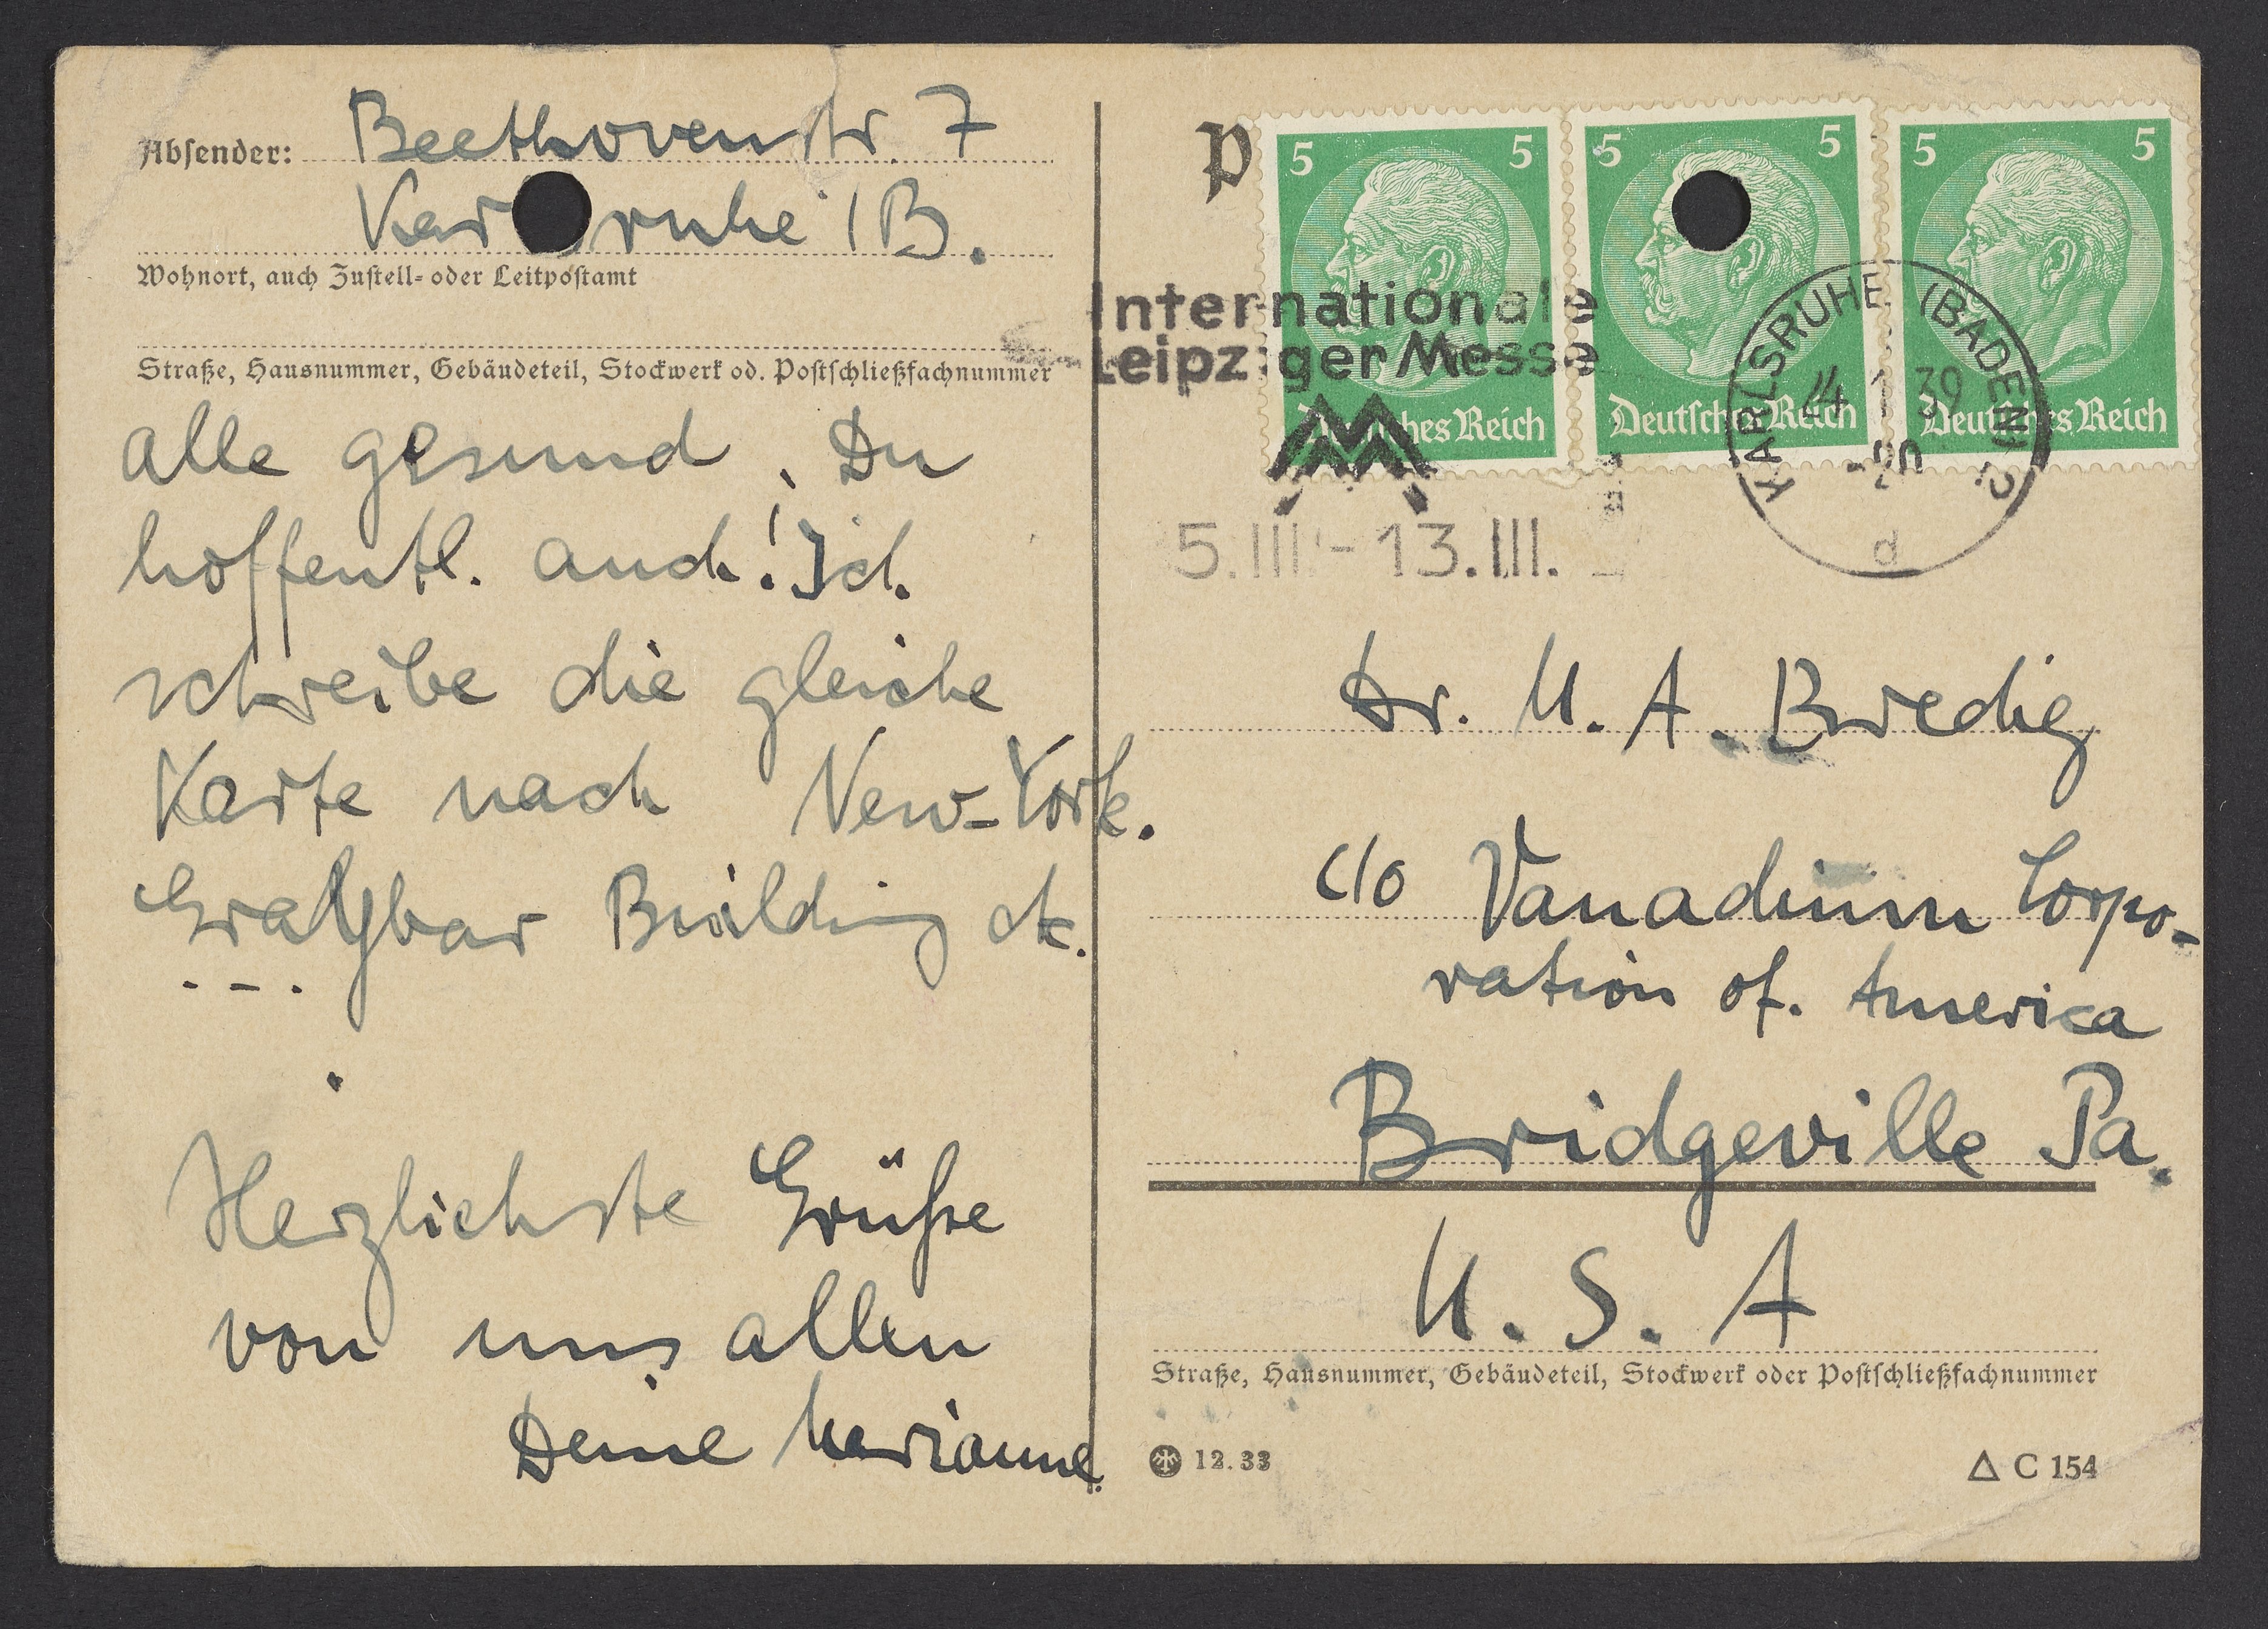 Absender: Beethovenstr. 7
Karlsruhe i/B.
Wohnort, auch Zustell- oder Leitpostamt
Straße, Hausnummer, Gebäudeteil, Stockwerk od. Postschließfachnummer
alle gesund, Du
hoffentl. auch! Ich
schreibe die gleiche
Karte nach New-York.
Graybar Building etc.
Herzlichste Grüße
von uns allen
Deine Marianne.
P
5 5 5 5 5 5
Deutsches Reich Deutsches Reich Deutsches Reich
Internationale
Leipziger Messe
M
5.III.-13.III.
KARLSRUHE (BADEN)
1 39
d
Dr. M. A. Bredig
c/o Vanadium Corpo-
ration of. America
Bridgeville Pa.
U. S. A
Straße, Hausnummer, Gebäudeteil, Stockwerk oder Postschließfachnummer
12. 33
△ C 154